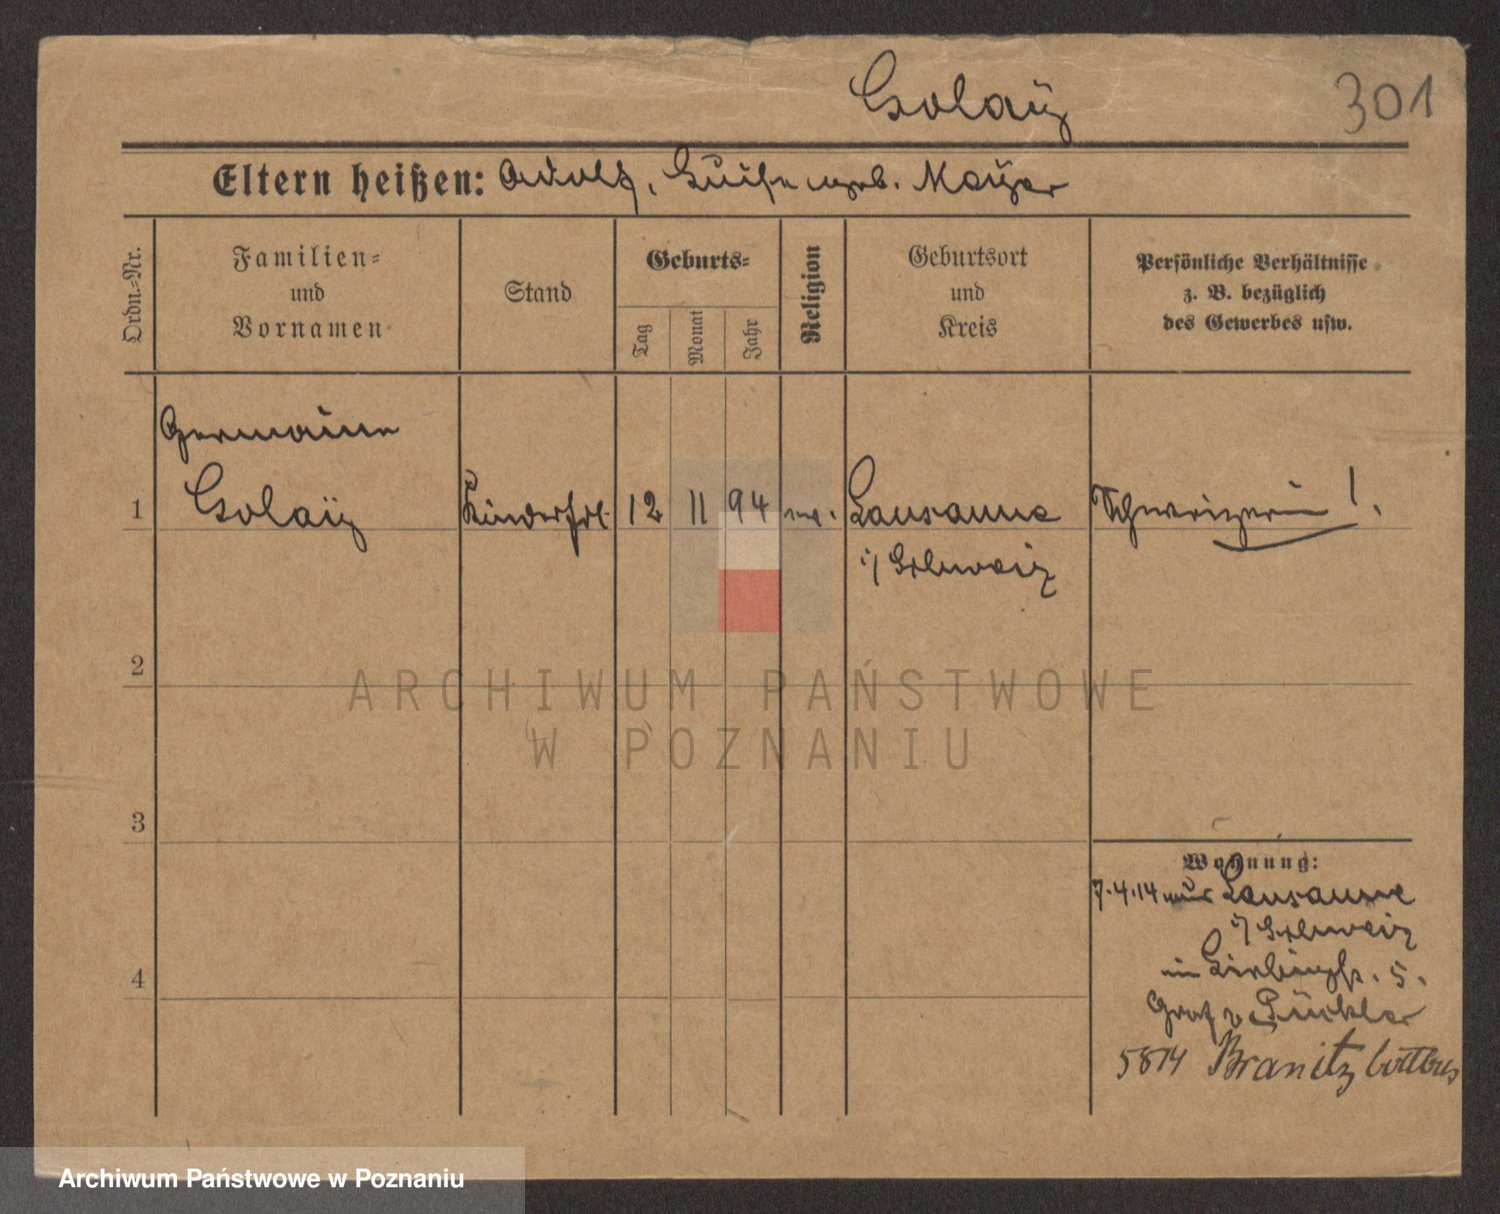 Golaÿ
301
Eltern heißen: Adolf, Luise geb. Mayer
Ordn.-Nr.
Familien-
und
Vornamen
Stand
Geburts-
Tag
Monat
Jahr
Religion
Geburtsort
und
Kreis
Persönliche Verhältnisse
z. B. bezüglich
des Gewerbes usw.
Germaine
1 Golaÿ Kinderfrl. 12 11 94 ev. Lausanne Schweizerin !.
i/ Schweiz
2
ARCHIWUM PAŃSTWOWE
W POZNANIU
3
Wohnung:
7.4.14 aus Lausanne
i/ Schweiz
5.
Graf v Pückler
5814 Branitz Cottbus
4
Archiwum Państwowe w Poznaniu